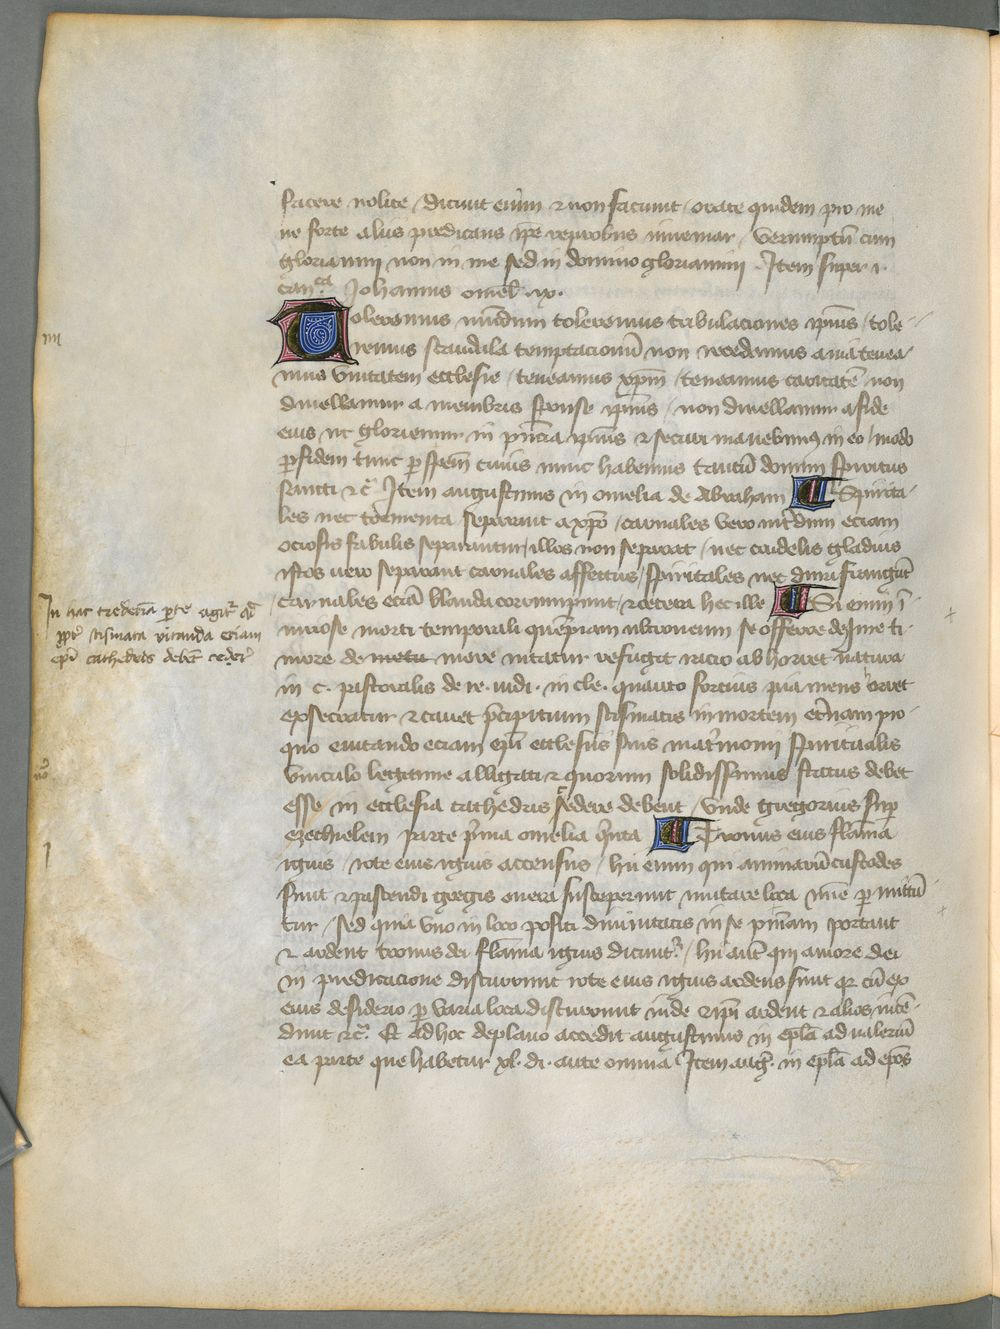 facere nolite / dicunt enim ⁊ non faciunt / orate quidem pro me
ne forte aliis predicans ip̄e reprobus inveniar / verumptn̄ cum
gloriamini non in me sed in domino gloriamini . Item super 1ª
can.ca Johannis omel̄ . ix .
Toleremus mūdum toleremus tribulaciones ip̄ius / tole
remus scandala temptacionū non recedamus a via tenea
mus vnitatem ecclesie / teneamus xp̄m / teneamus caritatē / non
divellamur a membris sponse ip̄ius / non divellamur a fide
eius ut gloriemur in pn̄cia ip̄ius ⁊ securi manebimꝰ in eo / modo
ꝑ fidem tunc ꝑ spem cuius nunc habemus tantū donum spiritus
sancti ⁊c̄ . Item augustinus in omelia de Abraham Spirita
les nec tormenta separant a xp̄o / carnales vero int̄dum eciam
ociosis fabulis separantur / illos non separat / nec crudelis gladius
istos vero separant carnales affectus / spiritales nec dura frangūt
carnales eciā blanda corrumpunt / ⁊ cetera hec ille Si enim ī
morti temporali quēpiam ultroneum se offerre de ti
more de metu refugit racio abhorret natura
in c . pastoralis de re . iudi . in cle . quanto forcius pia mens
exsecratur ⁊ cavet p̄cipitium scismatis in mortem et̄nam pro
quo evitando eciam ep̄i ecclesiis suis mat̄monii spiritualis
vinculo legitime alligati ⁊ quorum solidissimus status debet
esse in ecclesia cathedris cedere debent / vnde Gregorius suꝑ
ezechielem parte p̄ma omelia qⁱnta Tronus eius flāma
ignis / rote eius ignis accensus / hii enim qui animarū custodes
sunt ⁊ pascendi gregis onera susceperunt mutare loca mīme ꝑmittū
tur / sed quia vno in loco positi divinitatis in se pn̄ciam portant
⁊ ardent tronus dei flāma ignis dicunt̄ᷣ / hii aūt qui amore dei
in predicacione discurrunt rote eius ignis ardens sunt qꝛ cū ex
eius desiderio ꝑ varia loca discurrunt inde ⁊ ip̄i ardent ⁊ alios incē
dunt ⁊c̄ . Et ad hoc deplano accedit augustinus in ep̄la ad valeriū
ea parte que habetur xl . di . ante omnia Item auḡ . in ep̄la ad ep̄os
iiii
In hac tredecīa ꝑte agit̄ qd̄
ꝓpt̄ scismata vitanda eciam
ep̄i cathedras debēt ceder̄